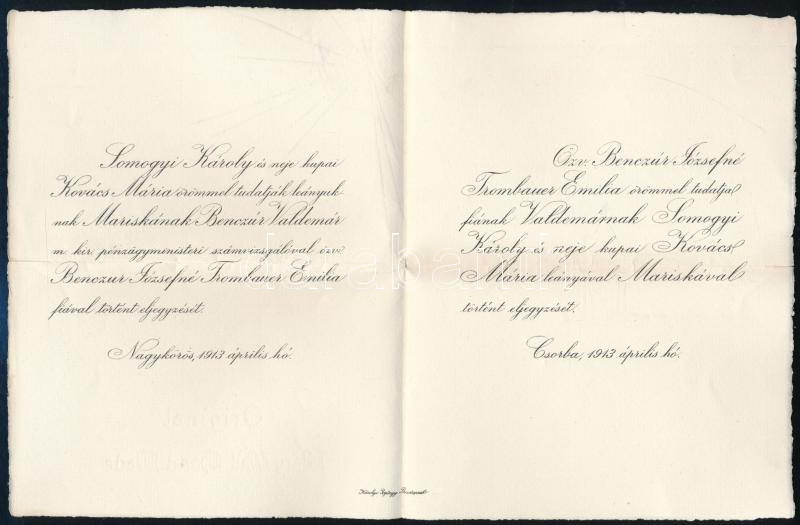 Somogyi Károly és neje kupai
Kovács Mária örömmel tudatják leányuk-
nak Mariskának Benczúr Valdemár
m. kir. pénzügyministeri számvizsgálóval özv.
Benczur Józsefné Trombauer Emilia
fiával történt eljegyzését.
Nagykőrös, 1913 április hó.
Özv. Benczúr Józsefné
Trombauer Emilia örömmel tudatja
fiának Valdemárnak Somogyi
Károly és neje kupai Kovács
Mária leányával Mariskával
történt eljegyzését.
Csorba, 1913 április hó.
darabanth.com
Original